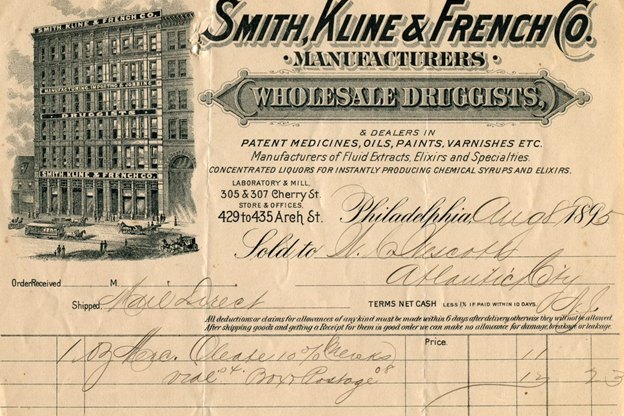 SMITH, KLINE & FRENCH CO.
MANUFACTURING, IMPORTING & JOBBING
DRUGGISTS
SMITH KLINE & FRENCH CO.
SMITH, KLINE & FRENCH CO.
MANUFACTURERS
WHOLESALE DRUGGISTS,
& DEALERS IN
PATENT MEDICINES, OILS, PAINTS, VARNISHES ETC.
Manufacturers of Fluid Extracts, Elixirs and Specialties.
CONCENTRATED LIQUORS FOR INSTANTLY PRODUCING CHEMICAL SYRUPS AND ELIXIRS.
LABORATORY & MILL,
305 & 307 Cherry St.
STORE & OFFICES,
429 to 435 Arch St.
Philadelphia, Aug 8 1895
Sold to W.
Atlantic City
Order Received M.
N.J.
Shipped Mail Direct
TERMS NET CASH LESS 1% IF PAID WITHIN 10 DAYS.
All deductions or claims for allowances of any kind must be made within 6 days after delivery otherwise they will not be allowed.
After shipping goods and getting a Receipt for them in good order we can make no allowance for damage, breakage or leakage.
Price.
1 oz Merc. Oleate 10% Mercks 11
vial 04 Box & Postage 08 12 23